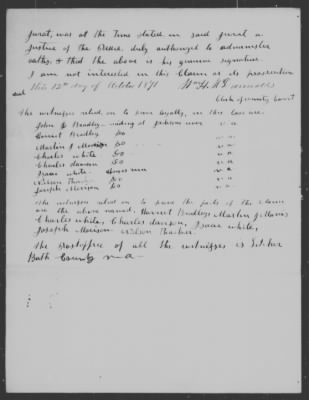 jurat, was at the time stated in said jurat a
justice of the peace, duly authorized to administer
oaths, & that the above is his genuine signature.
I am not interested in this Claim or its prosecution
this 12th day of October 1871 Wm H. H.
Clerk of County Court
The witnesses relied on to prove loyalty, in this case are
John G Bradley residing at
Harriet Bradley Do
Martin J Do
Charles White Do
Charles Dawson Do
Isaac White
Wilson Do
Joseph Morison Do
The witnesses relied on to prove the facts of the Claim
are the above named, Harriet Bradley, Martin J
Charles White, Charles Dawson, Isaac White,
Joseph Morison Wilson
The Postoffice of all the witnesses is
Bath County Va